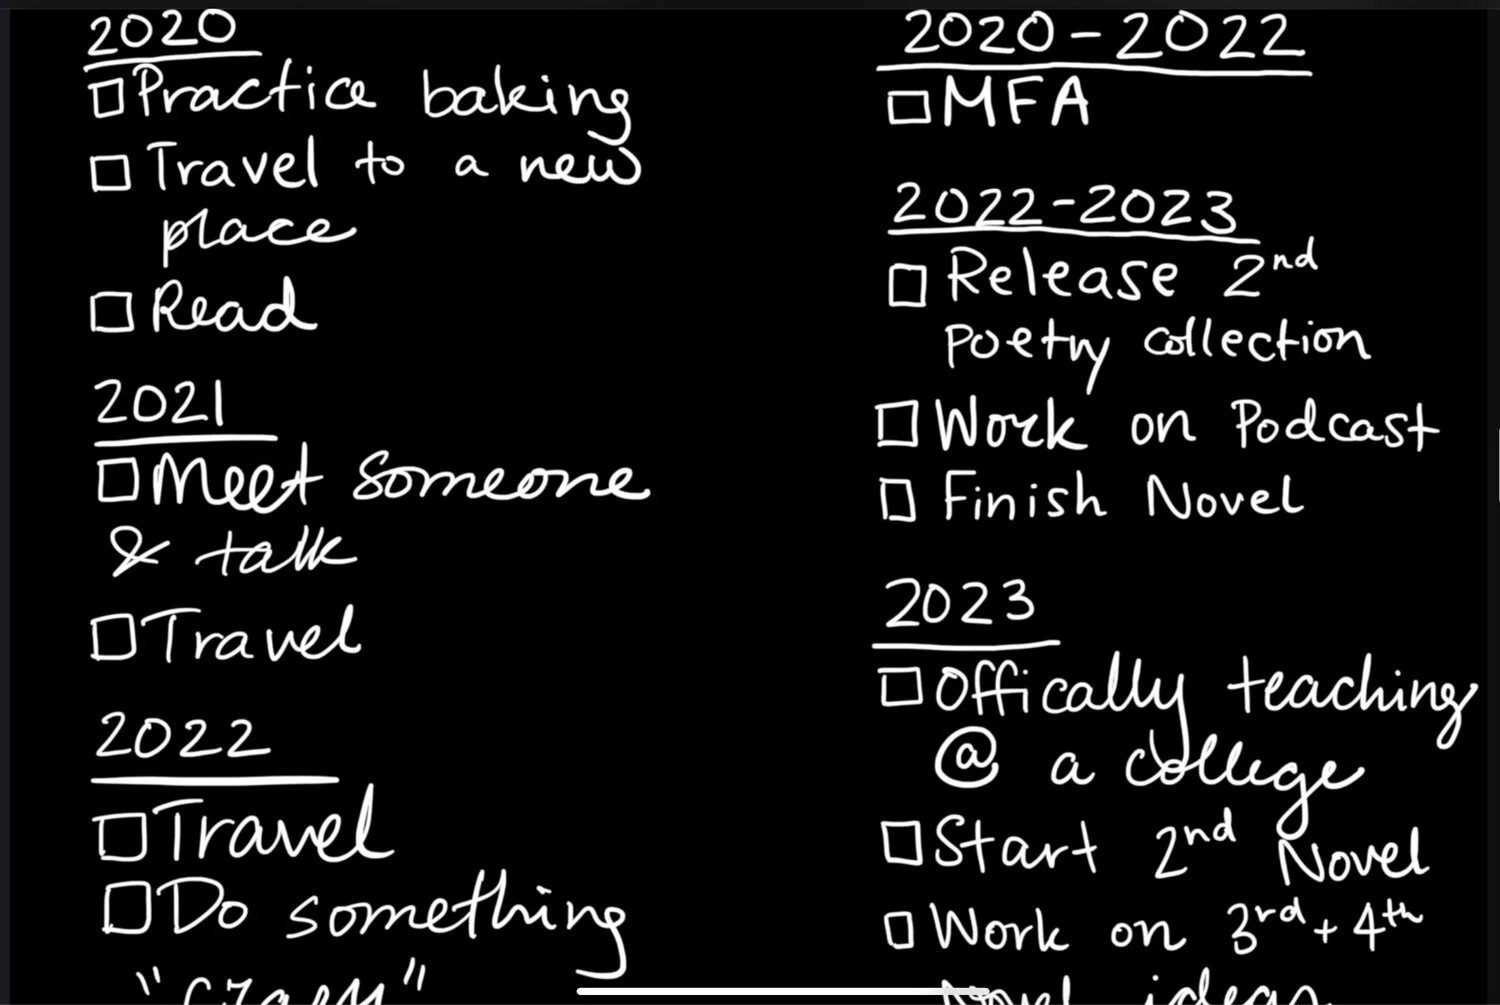 2020
Practice baking
Travel to a new
place
Read
2021
Meet someone
& talk
Travel
2022
Travel
Do something
"crazy"
2020-2022
MFA
2022-2023
Release 2nd
poetry collection
Work on Podcast
Finish Novel
2023
Offically teaching
@ a college
Start 2nd Novel
Work on 3rd + 4th
Novel ideas